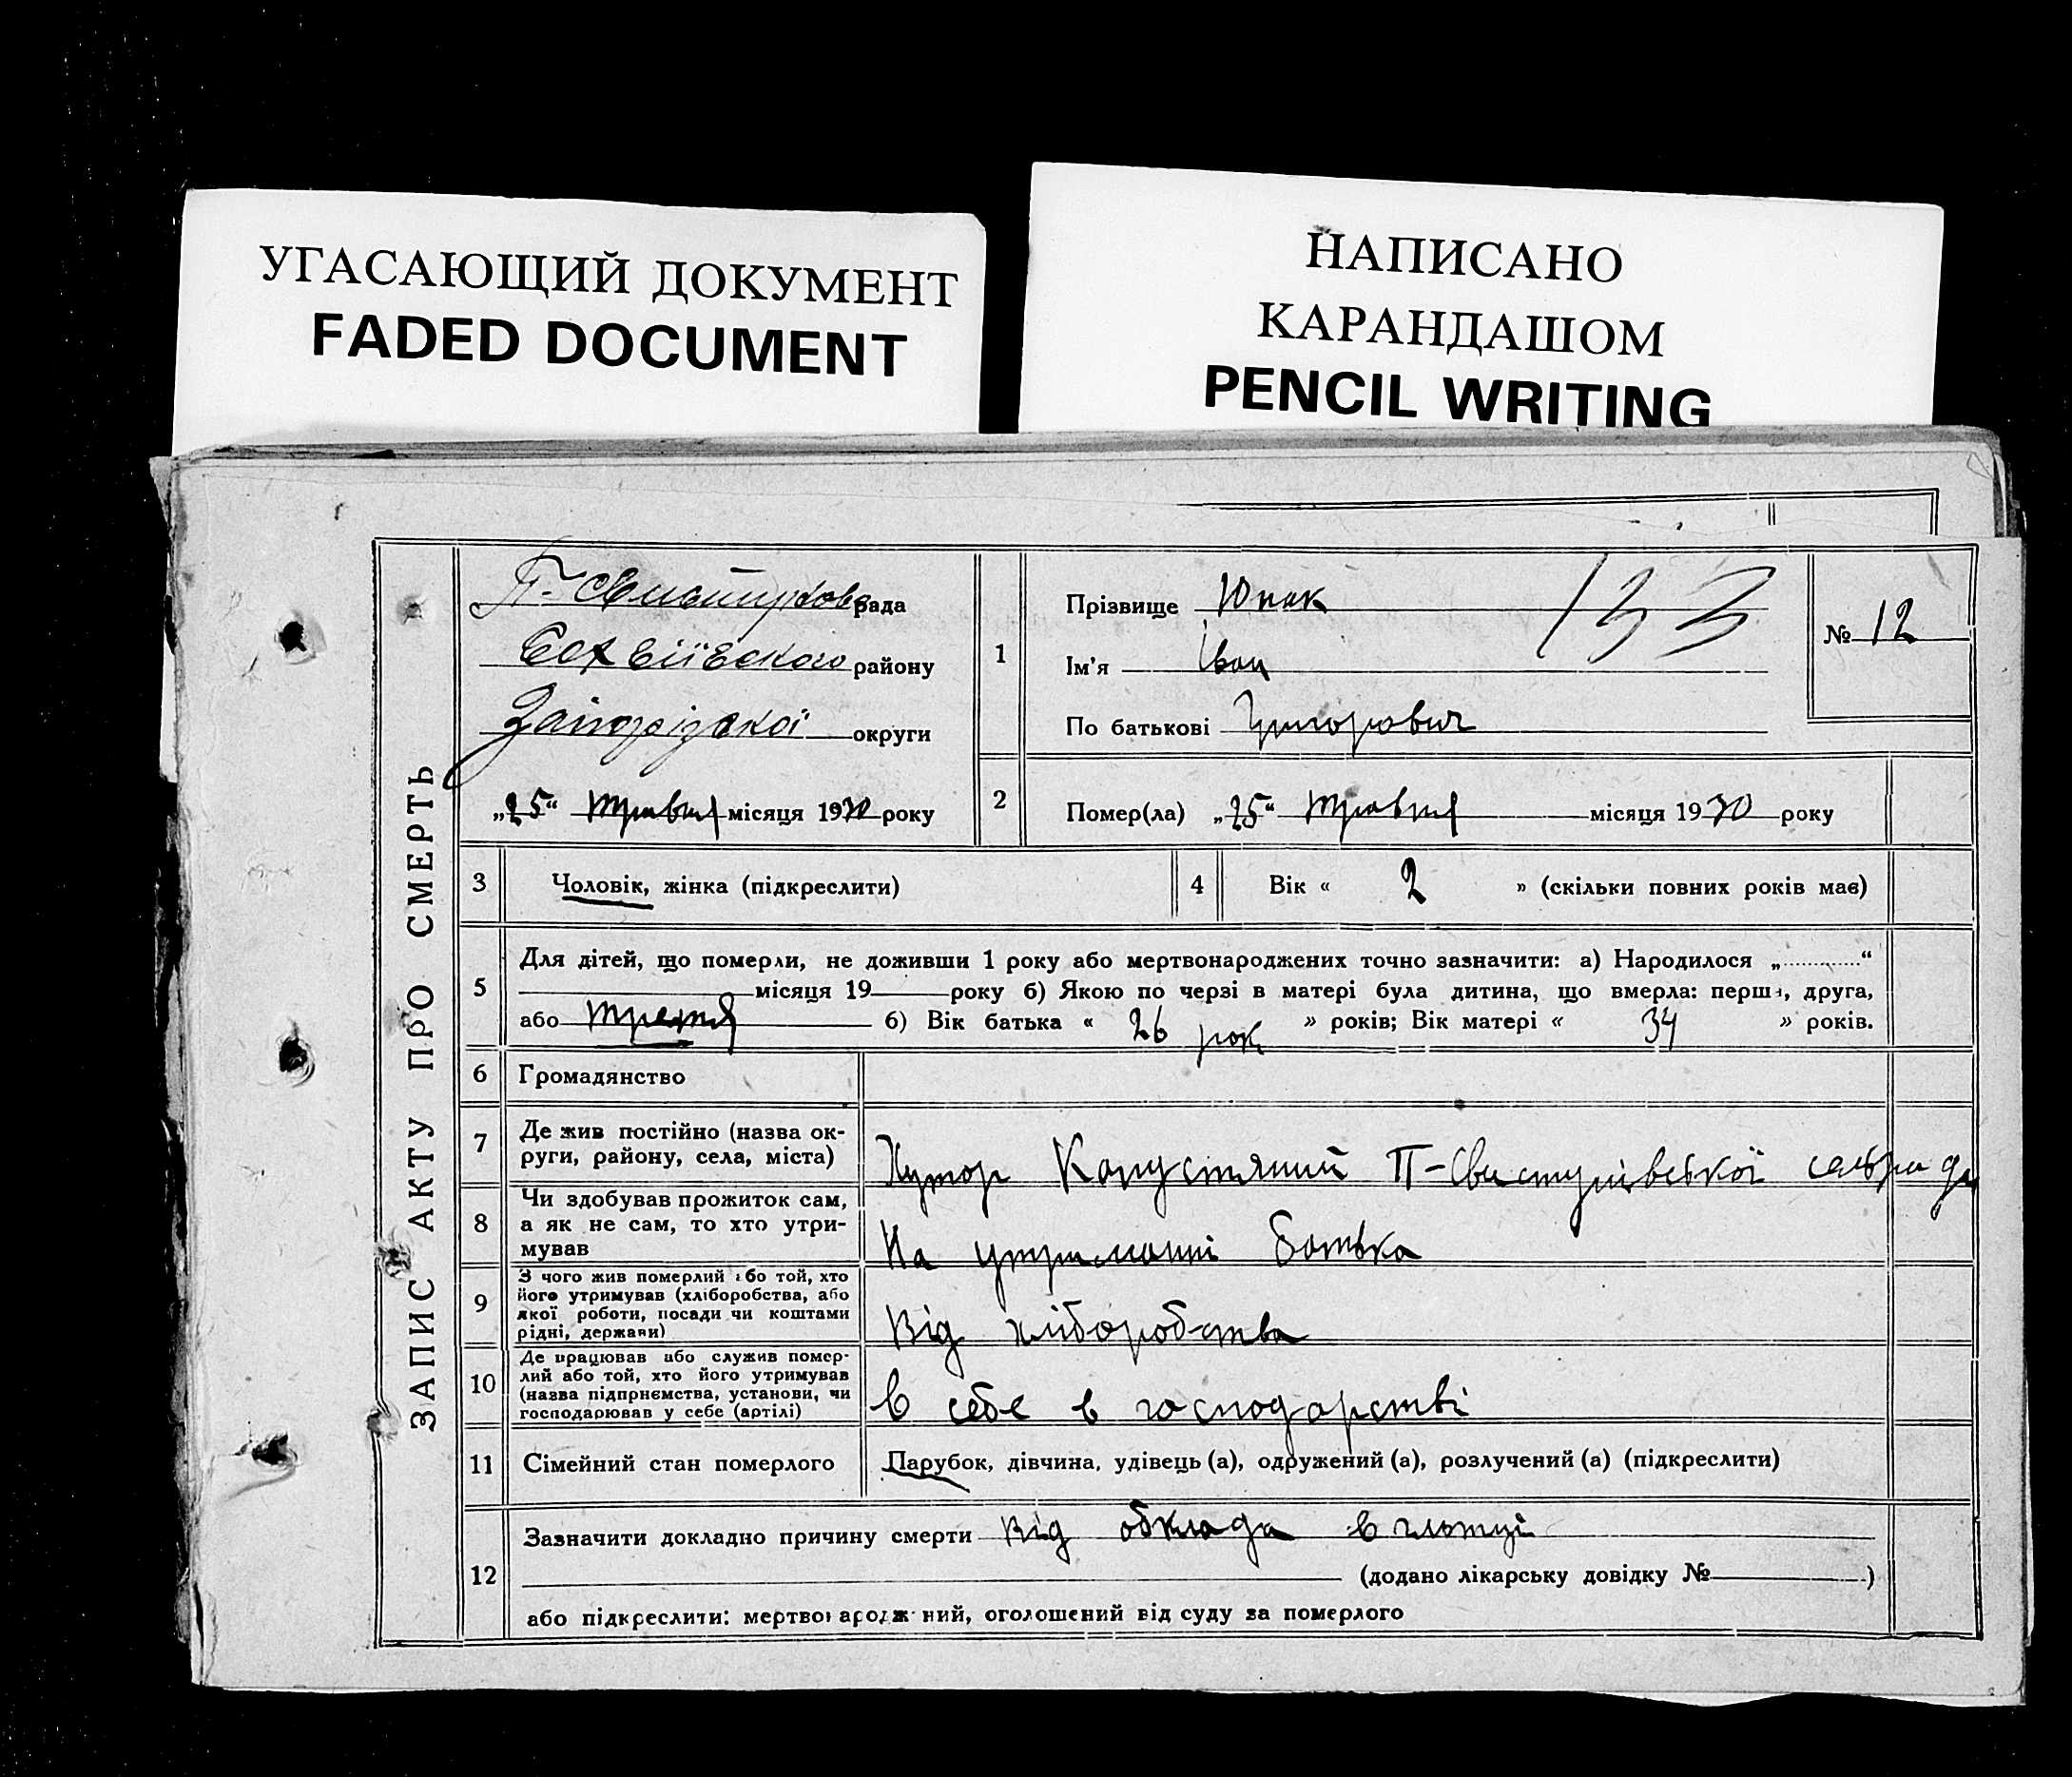 УГАСАЮЩИЙ ДОКУМЕНТ
FADED DOCUMENT
НАПИСАНО
КАРАНДАШОМ
PENCIL WRITING
ЗАПИС АКТУ ПРО СМЕРТЬ
рада
району
Запорізької округи
„25“ травня місяця 1930 року
1
Прізвище Юнак
Ім'я Іван
По батькові Григорович
133
№ 12
2 Помер(ла) „25“ травня місяця 1930 року
3 Чоловік, жінка (підкреслити)
4 Вік « 2 » (скільки повних років має)
5 Для дітей, що померли, не доживши 1 року або мертвонароджених точно зазначити: а) Народилося „ “
місяця 19 року б) Якою по черзі в матері була дитина, що вмерла: перша, друга,
або третя б) Вік батька « 26 рок » років; Вік матері « 34 » років.
6 Громадянство
7 Де жив постійно (назва ок-
руги, району, села, міста)
Хутор Капустяний П-Свистунівської сельради
8 Чи здобував прожиток сам,
а як не сам, то хто утри-
мував
На утриманні батька
9 З чого жив померлий або той, хто
його утримував (хліборобства, або
якої роботи, посади чи коштами
рідні, держави)
Від хліборобства
10 Де працював або служив помер-
лий або той, хто його утримував
(назва підприємства, установи, чи
господарював у себе (артілі)
в себе в господарстві
11 Сімейний стан померлого
Парубок, дівчина, удівець (а), одружений (а), розлучений (а) (підкреслити)
12 Зазначити докладно причину смерти Від обклада в глотці
(додано лікарську довідку № )
або підкреслити: мертвонароджений, оголошений від суду за померлого